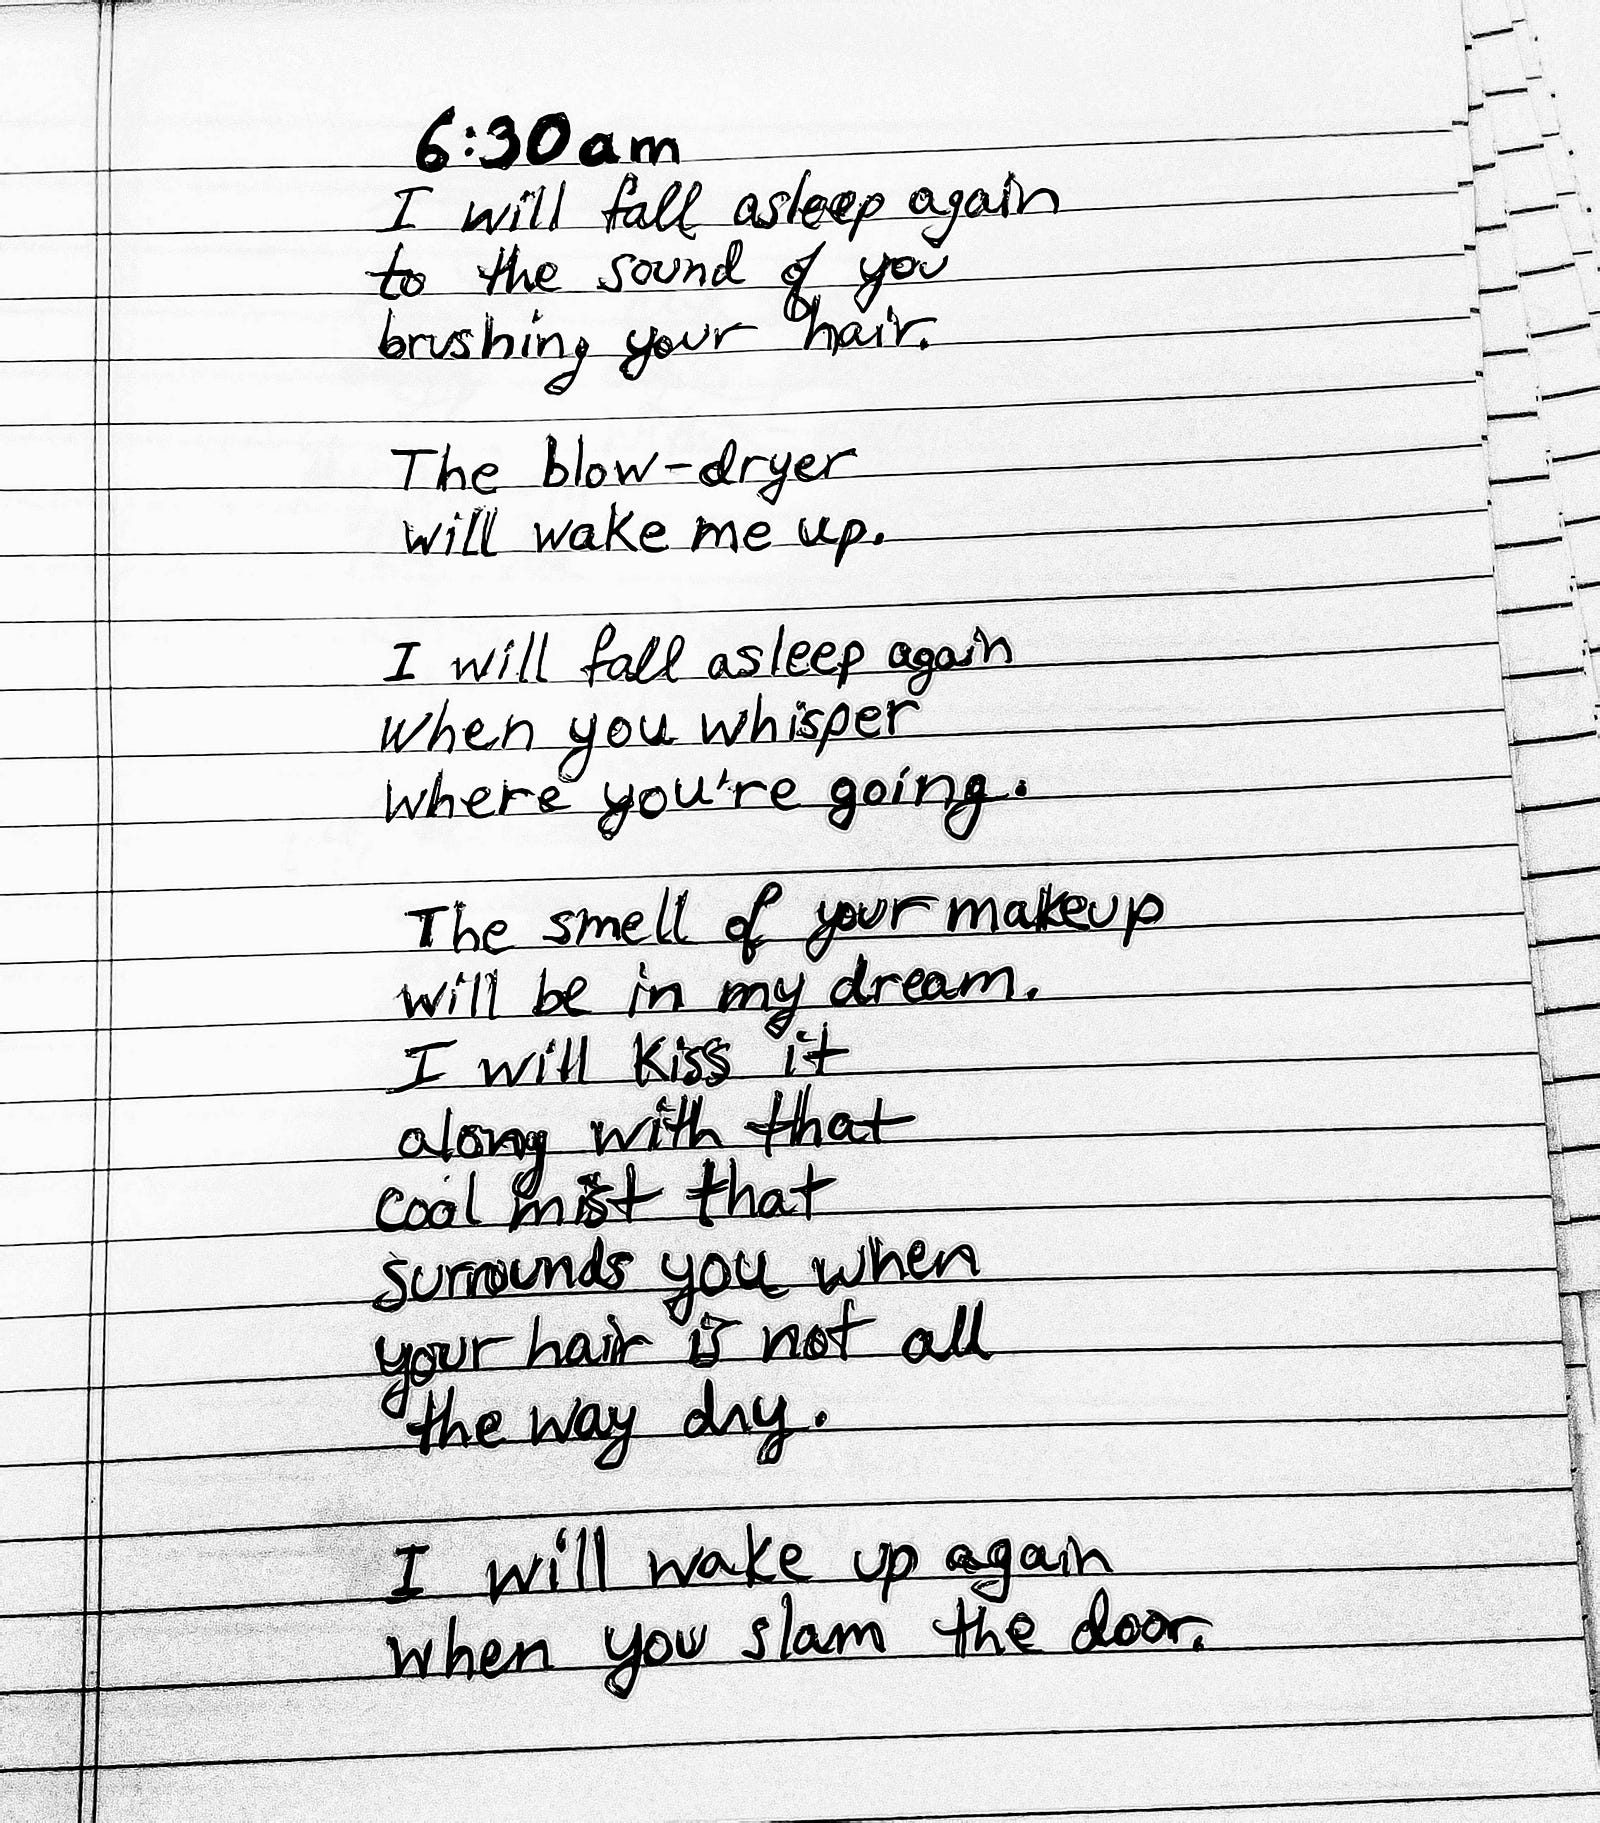 6:30am
I will fall asleep again
to the sound of you
brushing your hair.
The blow-dryer
will wake me up.
I will fall asleep again
when you whisper
where you're going.
The smell of your makeup
will be in my dream.
I will kiss it
along with that
cool mist that
surrounds you when
your hair is not all
the way dry.
I will wake up again
when you slam the door.